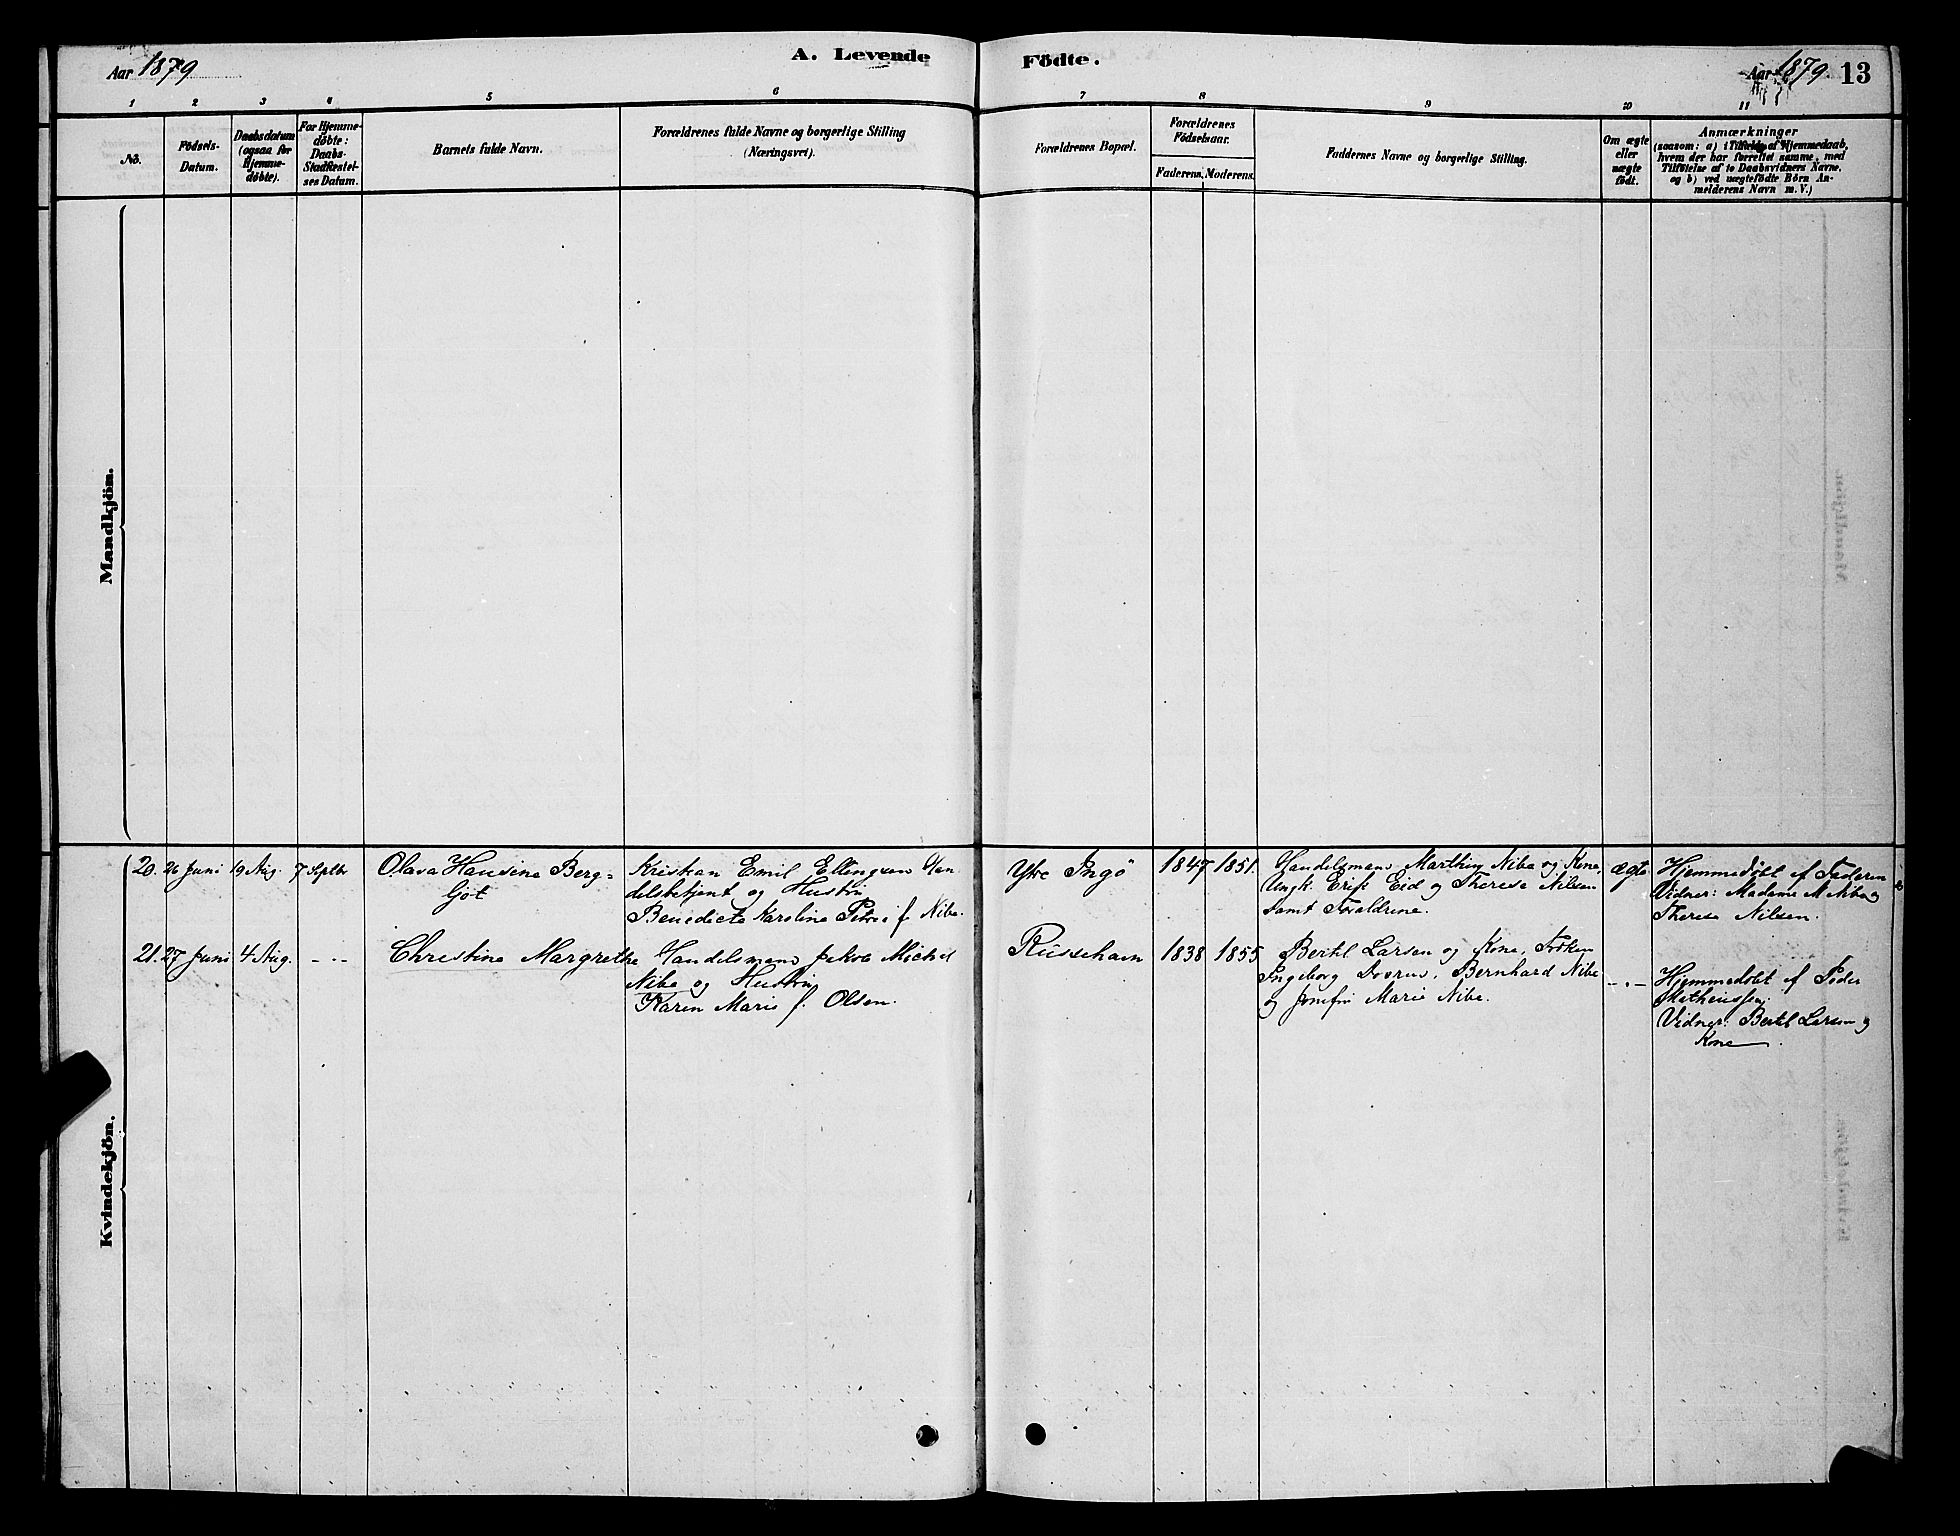 Aar 1879
A. Levende Födte.
Aar 1879. 13
1 2 3 4 5 6 7 8 9 10 11
No.
Födsels-
Datum.
Daabsdatum
(ogsaa for
Hjemme-
döbte).
For Hjemme-
döbte:
Daabs-
Stadfæstel-
ses Datum.
Barnets fulde Navn.
Forældrenes fulde Navne og borgerlige Stilling
(Næringsvei).
Forældrenes Bopæl.
Forældrenes
Födselsaar.
Faderens. Moderens.
Faddernes Navne og borgerlige Stilling.
Om ægte
eller
uægte
födt.
Anmærkninger
(saasom: a) i Tilfælde af Hjemmedaab,
hvem der har forrettet samme, med
Tilföielse af to Daabsvidners Navne,
og b) ved uægtefödte Börn An-
melderens Navn m. V.)
Mandkjön.
Kvindekjön.
20. 26 Juni 19 Aug. 7 Septbr
Olava Hansina Berg-
ljöt
Kristian Emil Ellengsen Han
delsbetjent og Hustru
Benedicte Karoline Petra f. Niba.
Ytre Ingö
1847 1851.
Handelsmand Marthin Niba og Kone,
Ungk. Erik Eid og Therese Nilsen
samt Forældrene.
ægte
Hjemmedöbt af Faderen
Vidner: Madame M. Niba og
Therese Nilsen.
21. 27 Juni 4 Aug. - - -
Christine Margrethe
Handelsmand Jakob Michel
Niba og Hustru
Karen Marie f. Olsen.
Russehavn
1838 1855
Bertel Larsen og Kone, Fröken
Ingeborg, Bernhard Niba
og Marie Niba.
- . -
Hjemmedöbt af Peder
Matheussen.
Vidner: Bertel Larsen og
Kone.